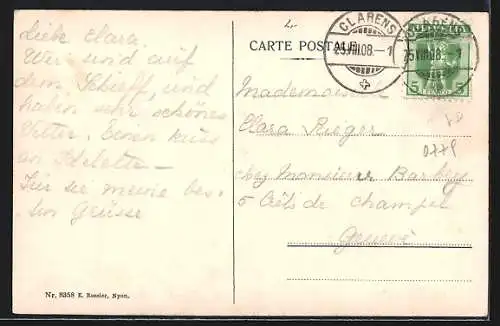 Liebe Clara
Wir sind auf
dem Schieff, und
haben sehr schönes
Vetter. Einen kuss
an
Für sie meine bes-
ten Grüsse
Nr. 8358 E. Rossier, Nyon.
CARTE POSTALE
CLARENS
25.VIII.08.-1
CLARENS
25.VIII.08.
5 FRANCO 5
Mademoiselle
Clara Rieger
chez Monsieur Barbey
5 Crêts de champel
Genève